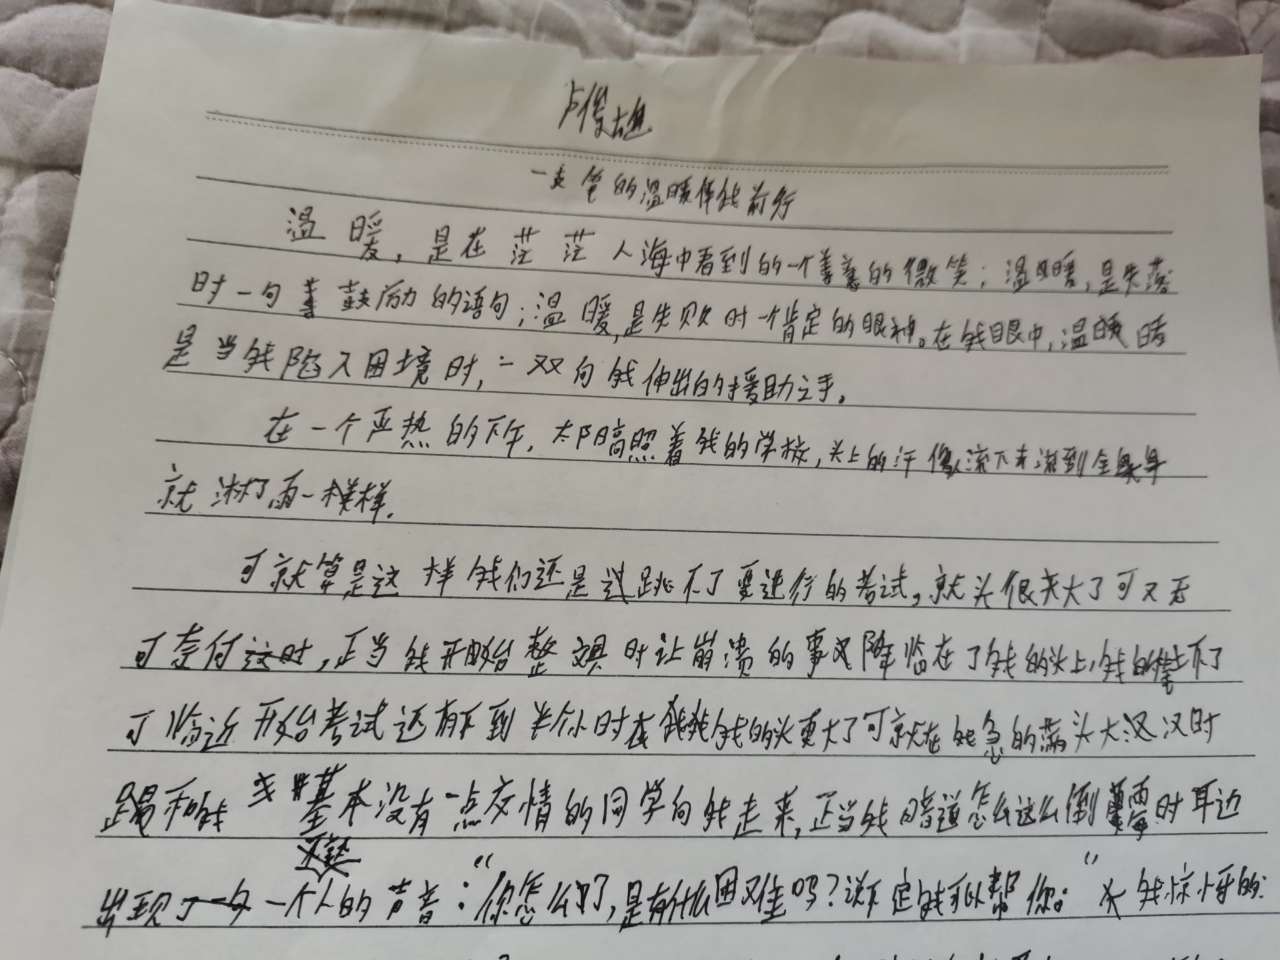 一支笔的温暖伴我前行
温暖，是在茫茫人海中看到的一个善意的微笑；温暖，是失落
时一句鼓励的语句；温暖，是失败时一个肯定的眼神。在我眼中，温暖
是当我陷入困境时，一双向我伸出的援助之手。
在一个严热的下午，太阳高照着我的学校，头上的汗像流下来流到全身
就淋了雨一样样，
可就算是这样我们还是逃跳不了要进行的考试，就头很大了可又无
可奈何这时，正当我开始台整理时让崩溃的事又降临在了我的头上，我的笔不了
了临近开始台考试还有不到半个小时在我我的头更大了可就在我急的满头大汉汉时
跟和我基本没有一点交情的同学向我走来，正当我暗道怎么这么倒霉时耳边
出现了一个人的声音：“你怎么了，是有什么困难吗？说不定我可以帮你。”我惊呀的